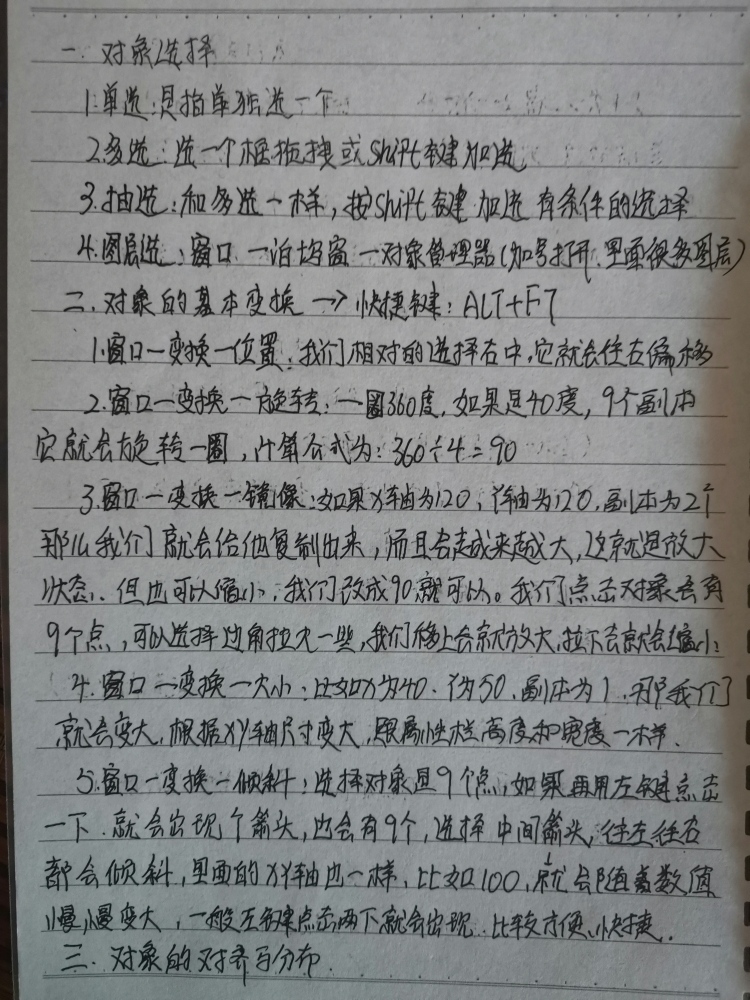 一. 对象选择
1.单选:是指单独选一个
2.多选:选一个框拖拽或shift键加选
3.抽选:和多选一样,按shift键加选 有条件的选择
4.图层选:窗口一泊坞窗一对象管理器(加号打开.里面很多图层)
二.对象的基本变换 → 快捷键:ALT+F7
1.窗口一变换一位置:我们相对的选择右中,它就会往右偏移
2.窗口一变换一旋转:一圈360度,如果是40度,9个副本
它就会旋转一圈,计算公式为:360÷4=90
3.窗口一变换一镜像:如果X轴为120,Y轴为120,副本为2个
那么我们就会给他复制出来,而且会越来越大,这就是放大
状态、但也可以缩小,我们改成90就可以。我们点击对象会有
9个点,可以选择边角拉大一些,我们移上去就放大,拉下去就会缩小:
4.窗口一变换一大小:比如X为40.Y为50.副本为1.那我们
就会变大,根据XY轴尺寸变大,跟属性栏高度和宽度一样.
5.窗口一变换一倾斜:选择对象是9个点,如果再用左键点击
一下.就会出现个箭头,也会有9个,选择中间箭头,往左往右
都会倾斜,里面的XY轴也一样,比如100,就会随着数值
慢慢变大,一般左键点击两下就会出现.比较方便、快捷.
三.对象的对齐与分布